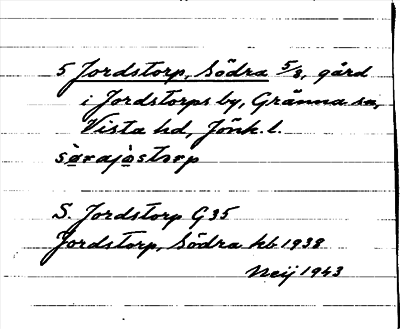 5 Jordstorp, Södra 5/8, gård
i Jordstorps by, Gränna sn,
Vista hd, Jönk. l.
S. Jordstorp G35
Jordstorp, Södra kb 1938
Neij 1943